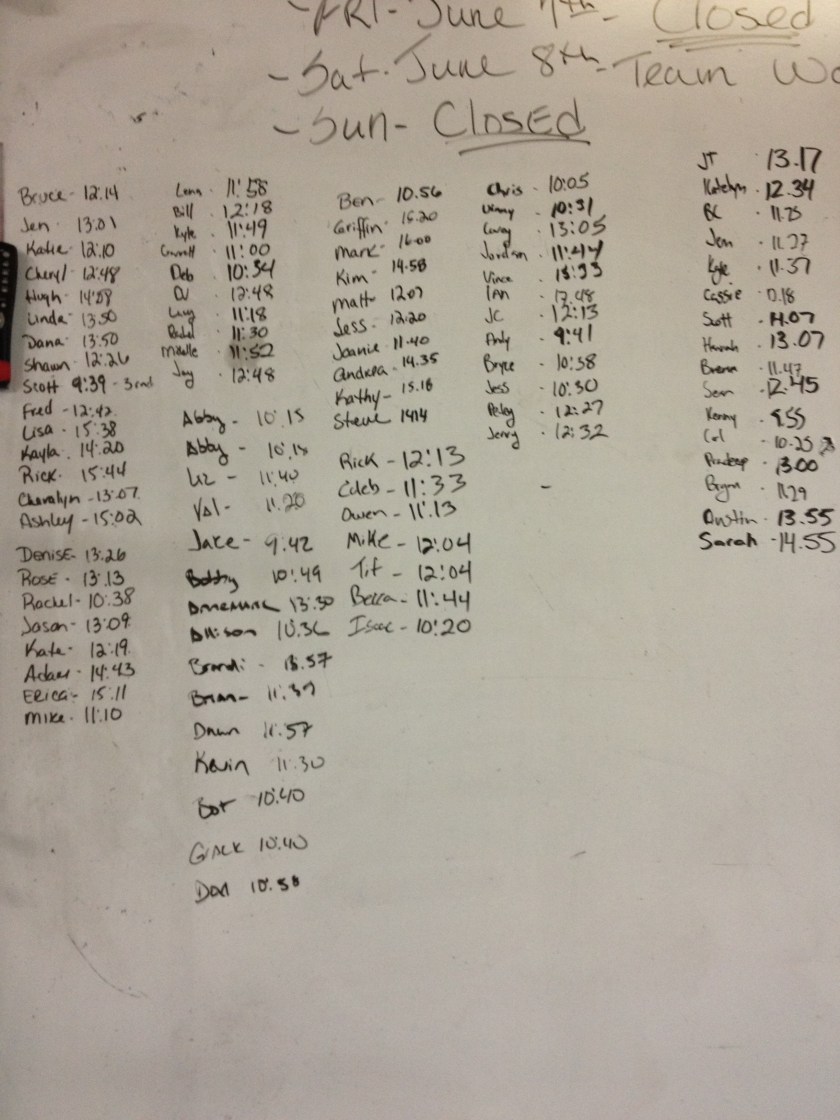 - FRI- June 7th- Closed
- Sat. June 8th- Team Wo
- Sun- Closed
Bruce - 12:14
Jen - 13:01
Katie - 12:10
Cheryl - 12:48
Hugh - 14:59
Linda - 13:50
Dana - 13:50
Shawn - 12:26
Scott 9:39 - 3rd
Fred - 12:42
Lisa - 15:38
Kayla - 14:20
Rick - 15:44
Cheralyn - 13:07
Ashley - 15:02
Denise - 13:26
Rose - 13:13
Rachel - 10:38
Jason - 13:09
Kate - 12:19
Adam - 14:43
Erica - 15:11
Mike - 11:10
Lena - 11:58
Bill - 12:18
Kyle - 11:49
11:00
Deb - 10:54
DJ - 12:48
Lucy - 11:18
Rachel - 11:30
Michelle - 11:52
Jay - 12:48
Abby - 10:15
Abby - 10:15
Liz - 11:40
Val - 11:20
Jake - 9:42
Bobby 10:49
Annemarie 13:30
Allison 10:36
Brandi - 13:57
Brian - 11:39
Dawn 11:57
Kevin 11:30
10:40
10:40
Don 10:58
Ben - 10:56
Griffin - 15:20
Mark - 16:00
Kim - 14:58
Matt 12:07
Jess - 12:20
Joanie 11:40
Andrea - 14:35
Kathy - 15:18
Steve 1414
Rick - 12:13
Caleb - 11:33
Owen - 11:13
Mike - 12:04
Tif - 12:04
Becca - 11:44
Isaac - 10:20
Chris - 10:05
Vinny - 10:31
Corey - 13:05
Jordan - 11:44
Vince - 13:33
Ian - 12:48
JC - 12:13
Andy - 9:41
Bryce - 10:58
Jess - 10:30
Haley - 12:27
Jenny - 12:32
JT - 13.17
Katelyn - 12.34
BC - 11.25
Jen - 11.27
Kyle - 11.37
Cassie
Scott - 14.07
Hannah - 13.07
Brenna - 11.47
Sean - 12.45
Kenny - 9.55
Cal - 10.25
Pradeep - 13:00
Brynn - 11.29
Austin - 13.55
Sarah - 14.55